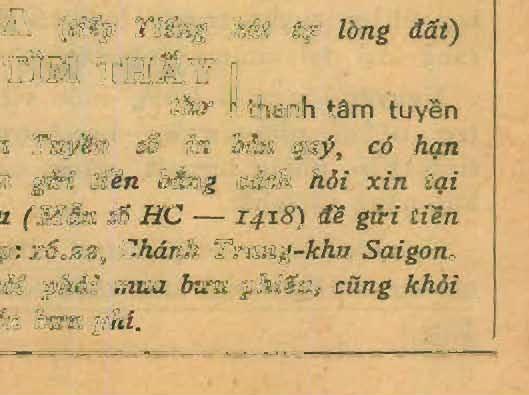 (tiếp Tiếng hát tự lòng đất)
TÌM THẤY
thơ thanh tâm tuyền
Tuyền số in bản quý, có hạn
gửi tiền bằng cách hỏi xin tại
(Mẫu số HC — 1418) để gửi tiền
16.22, Chánh Trung-khu Saigon.
phải mua bưu phiếu, cũng khỏi
bưu phí.